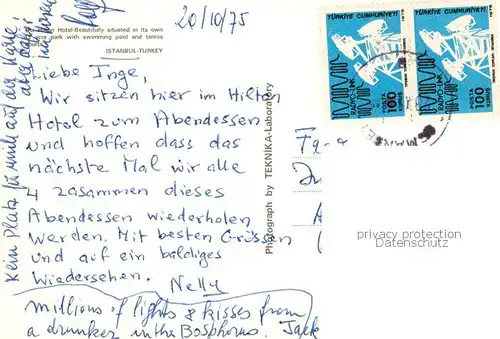 20/10/75
Hotel-Beautifully situated in its own
park with swimming pool and tennis
ISTANBUL-TURKEY
Liebe Inge,
Wir sitzen hier im Hilton
Hotel zum Abendessen
und hoffen dass das
nächste Mal wir alle
4 zusammen dieses
Abendessen wiederholen
werden. Mit besten Grüssen
und auf ein baldiges
Wiedersehen. Nelly
millions of lights & kisses from
a drunker in the Bosphorus. Jack
Kein Platz für mich auf der Karte
Photograph by TEKNIKA-Laboratory
TÜRKİYE CUMHURİYETİ
RADYO-LİNK
POSTA
100
KURUŞ
TÜRKİYE CUMHURİYETİ
RADYO-LİNK
POSTA
100
KURUŞ
privacy protection
Danksammler